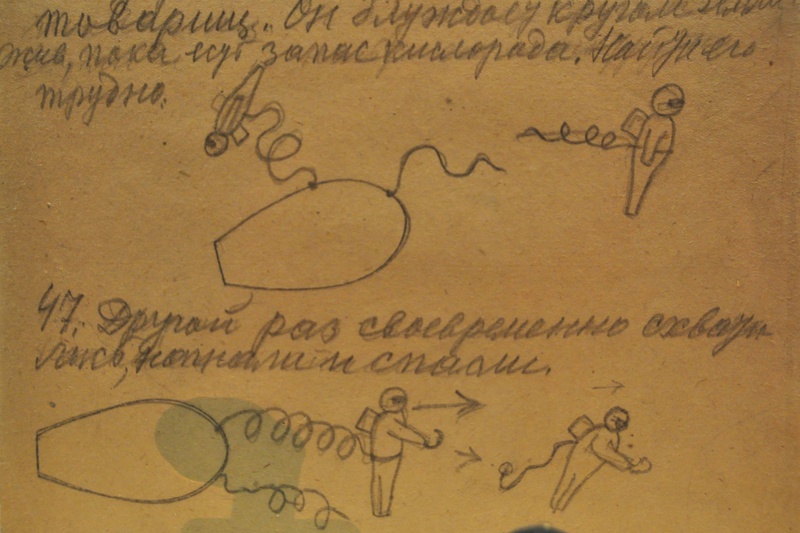 товарищ. Он блуждает кругом Земли
жив, пока есть запас кислорода. Найти его
трудно.
47. Другой раз своевременно схвати-
лись, нагнали и спасли.